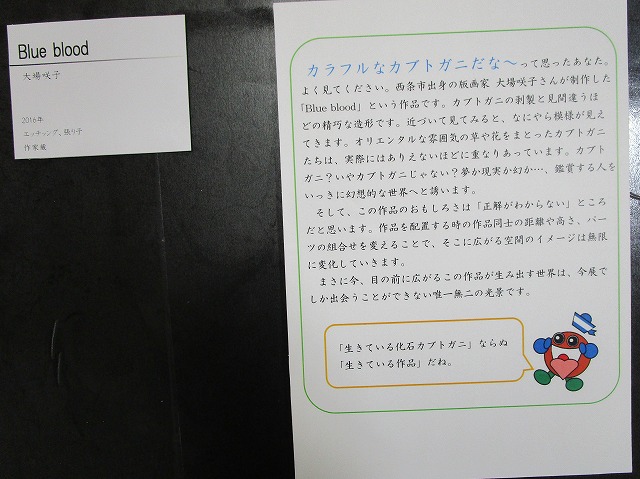 Blue blood
大場咲子
2016年
エッチング、張り子
作家蔵
カラフルなカブトガニだな～って思ったあなた。
よく見てください。西条市出身の版画家 大場咲子さんが制作した
「Blue blood」という作品です。カブトガニの剥製と見間違うほ
どの精巧な造形です。近づいて見てみると、なにやら模様が見え
てきます。オリエンタルな雰囲気の草や花をまとったカブトガニ
たちは、実際にはありえないほどに重なりあっています。カブト
ガニ？いやカブトガニじゃない？夢か現実か幻か…、鑑賞する人を
いっきに幻想的な世界へと誘います。
そして、この作品のおもしろさは「正解がわからない」ところ
だと思います。作品を配置する時の作品同士の距離や高さ、パー
ツの組合せを変えることで、そこに広がる空間のイメージは無限
に変化していきます。
まさに今、目の前に広がるこの作品が生み出す世界は、今展で
しか出会うことができない唯一無二の光景です。
「生きている化石カブトガニ」ならぬ
「生きている作品」だね。